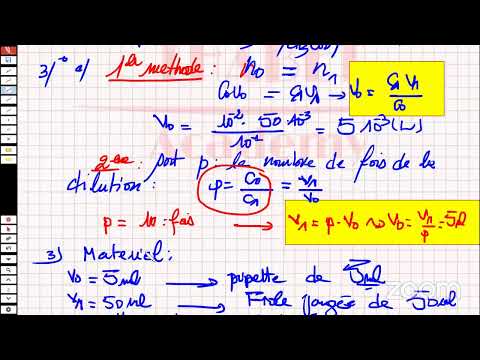 3/ a/ 1ère méthode : n0 = n1
C0V0 = C1V1 → V0 = C1V1/C0
V0 = 10⁻² · 50 10⁻³ / 10⁻¹ = 5 10⁻³ (L)
2ème : soit p : la nombre de fois de la
dilution : p = C0/C1 = V1/V0
p = 10 fois → V1 = p·V0 ~ V0 = V1/p = 5
3) Materiel :
V0 = 5ml → pipette de 5ml
V1 = 50ml → Fiole jaugée de 50ml
zoom